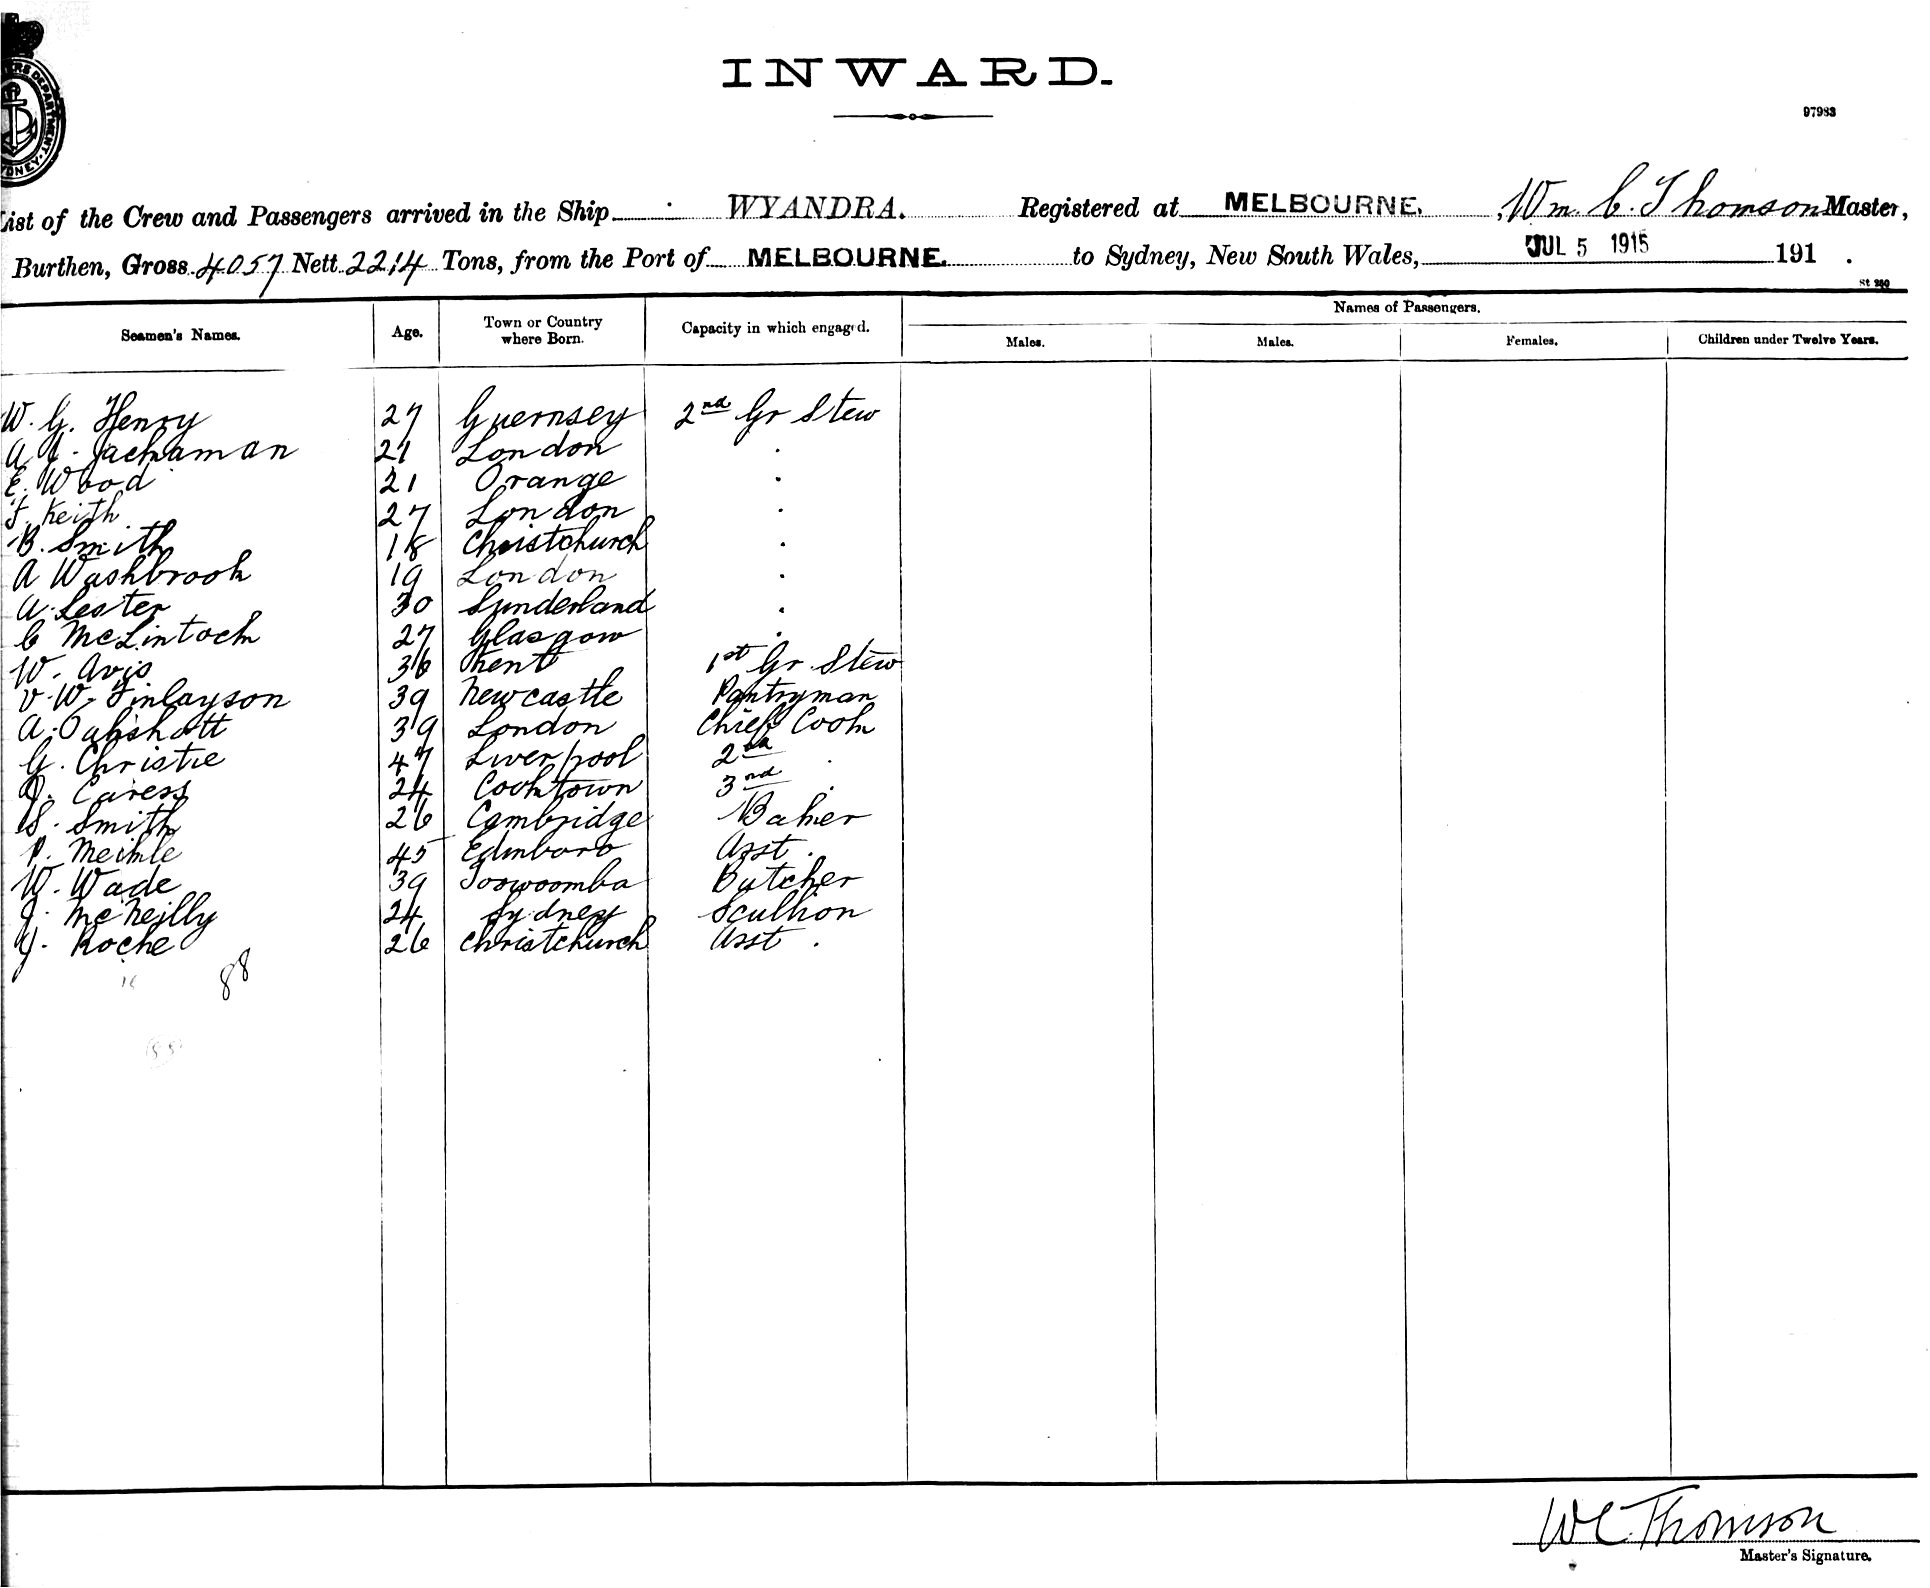 INWARD.
97983
List of the Crew and Passengers arrived in the Ship WYANDRA. Registered at MELBOURNE, Wm. C. Thomson Master,
Burthen, Gross 4057 Nett 2214 Tons, from the Port of MELBOURNE. to Sydney, New South Wales, JUL 5 1915 191 .
St 250
Seamen's Names. Age. Town or Country where Born. Capacity in which engaged. Names of Passengers.
Males. Males. Females. Children under Twelve Years.
W. G. Henry 27 Guernsey 2nd Gr Stew
A Jachaman 21 London "
E. Wood 21 Orange "
F. Keith 27 London "
B. Smith 18 Christchurch "
A Washbrook 19 London "
A. Lester 30 Sunderland "
C McLintock 27 Glasgow "
W. Avis 36 Kent 1st Gr Stew
V. W. Finlayson 39 Newcastle Pantryman
A. Oakshott 39 London Chief Cook
G. Christie 47 Liverpool 2nd "
J. Caress 24 Cooktown 3rd "
S. Smith 26 Cambridge Baker
P. Meikle 45 Edinboro Asst "
W. Wade 39 Toowoomba Butcher
J. McNeilly 24 Sydney Scullion
J. Roche 26 Christchurch Asst "
88
WC Thomson
Master's Signature.